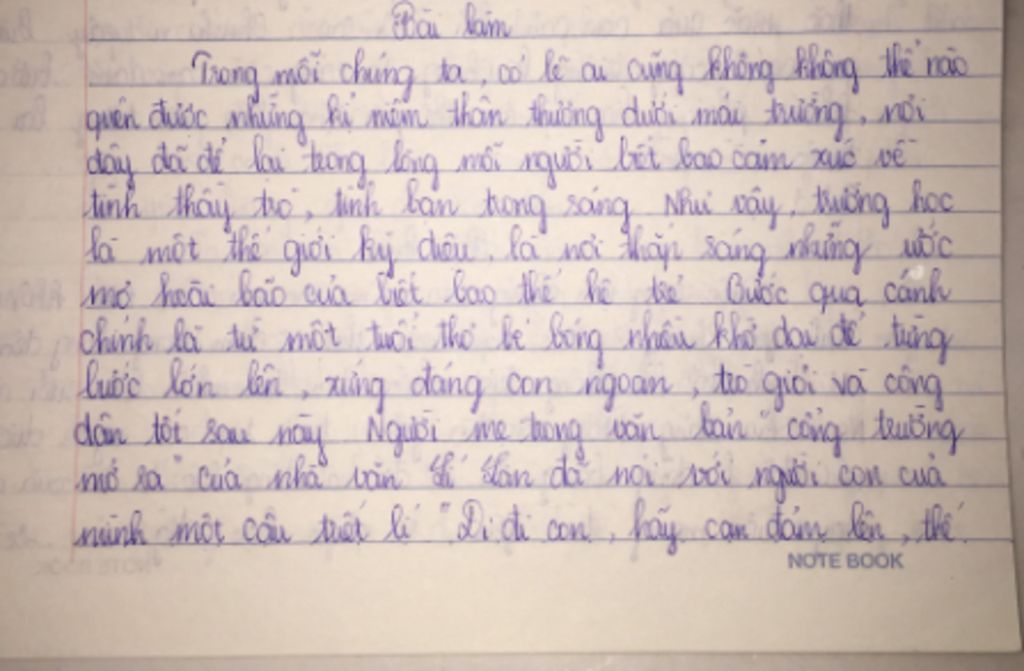 Bài làm
Trong mỗi chúng ta, có lẽ ai cũng không không thể nào
quên được những kỉ niệm thân thương dưới mái trường, nơi
đây đã để lại trong lòng mỗi người biết bao cảm xúc về
tình thầy trò, tình bạn trong sáng. Như vậy, trường học
là một thế giới kỳ diệu, là nơi thắp sáng những ước
mơ hoài bão của biết bao thế hệ trẻ. Bước qua cánh
chính là từ một tuổi thơ bé bỏng nhiều khờ dại để từng
bước lớn lên, xứng đáng con ngoan, trò giỏi và công
dân tốt sau này. Người mẹ trong văn bản "cổng trường
mở ra" của nhà văn Lí Lan đã nói với người con của
mình một câu triết lí "Đi đi con, hãy can đảm lên, thế
NOTE BOOK